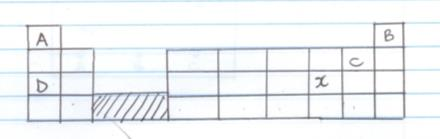 A B
C
D x